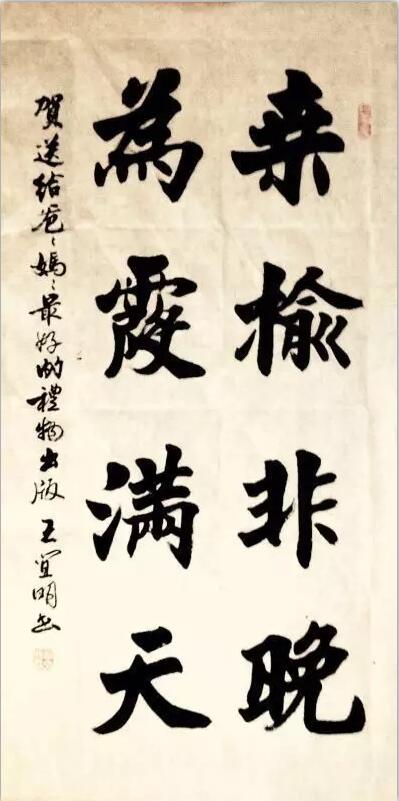 桑榆非晚
為霞满天
賀送给爸〻媽〻最好的禮物出版 王宜明书